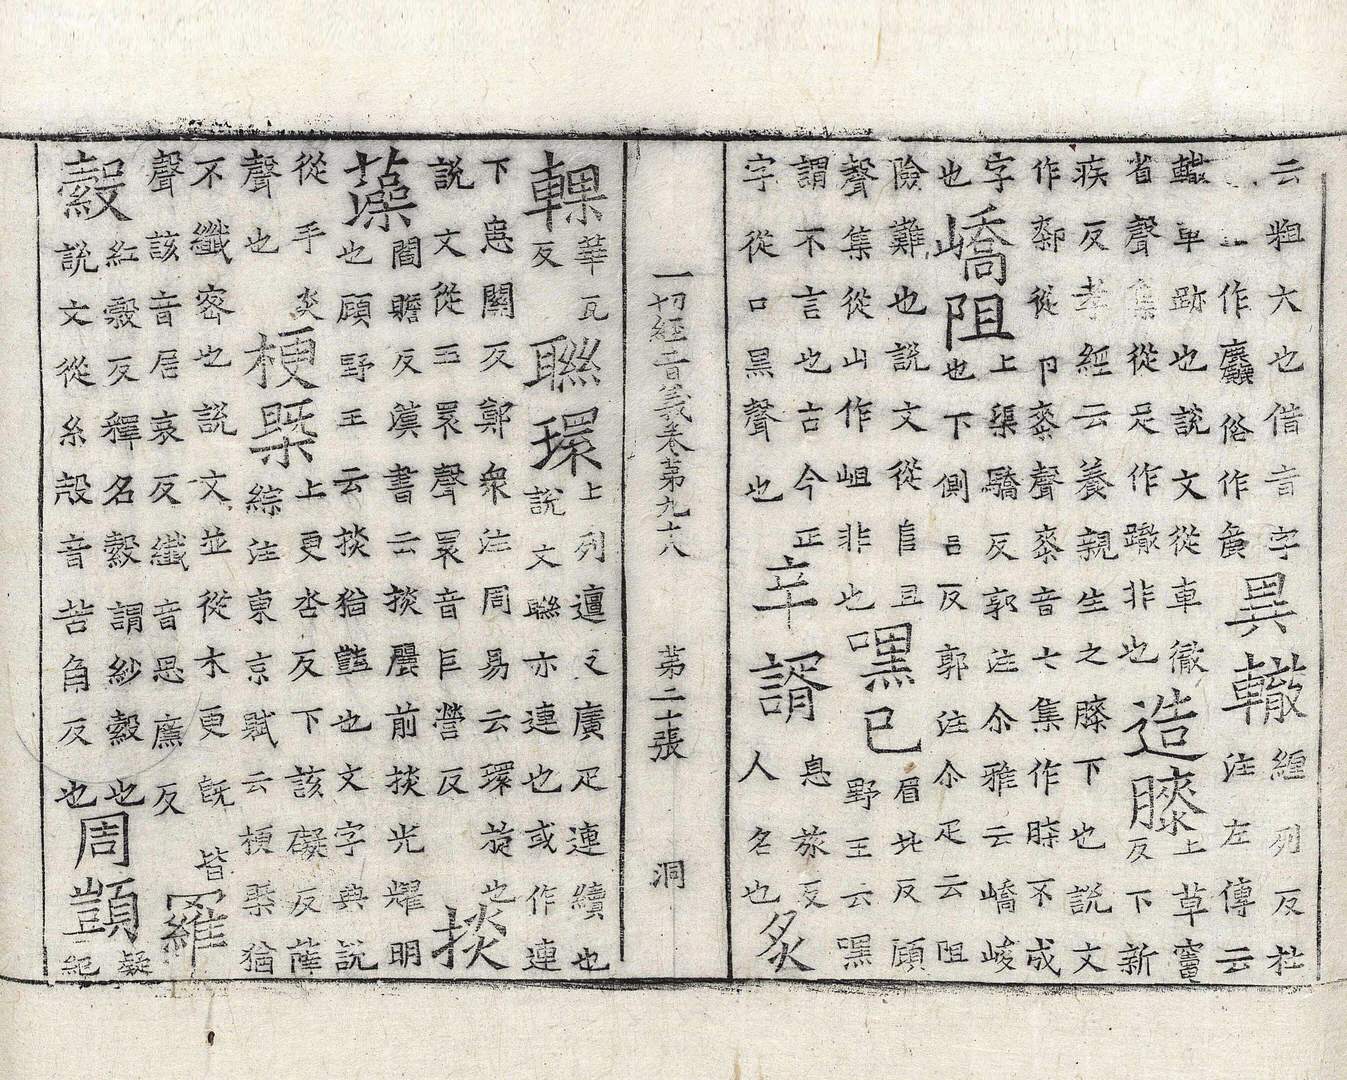 云粗大也借音字作麤俗作麁異轍纏列反杜注左傳云
轍車跡也說文從車徹省聲集從足作蹾非也造膝上草竈反下新
疾反孝經云養親生之膝下也說文作厀從卩桼聲桼音七集作𦡀不成
字也嶠阻上渠驕反郭注尒雅云嶠峻也下側呂反郭注尒疋云阻
險難也說文從𨸏且聲集從山作岨非也嘿已眉北反顧野王云嘿
謂不言也古今正字從口黑聲也辛諝息旅反人名也炙
一切經音義卷第九十八 第二十張 洞
輠華瓦反聯環上列邅反廣疋連續也說文聯亦連也或作連
下患關反鄭衆注周易云環旋也說文從玉睘聲睘音巨營反掞
藻閻贍反漢書云掞麗前掞光耀明也顧野王云掞猶豔也文字典說
從手炎聲也梗槩上更杏反下該礙反薛綜注東京賦云梗槩猶
不纖密也說文並從木更旣皆聲該音居哀反纖音思廉反羅
縠紅縠反釋名縠謂紗縠也說文從糸㱿音苦角反也周顗疑紀